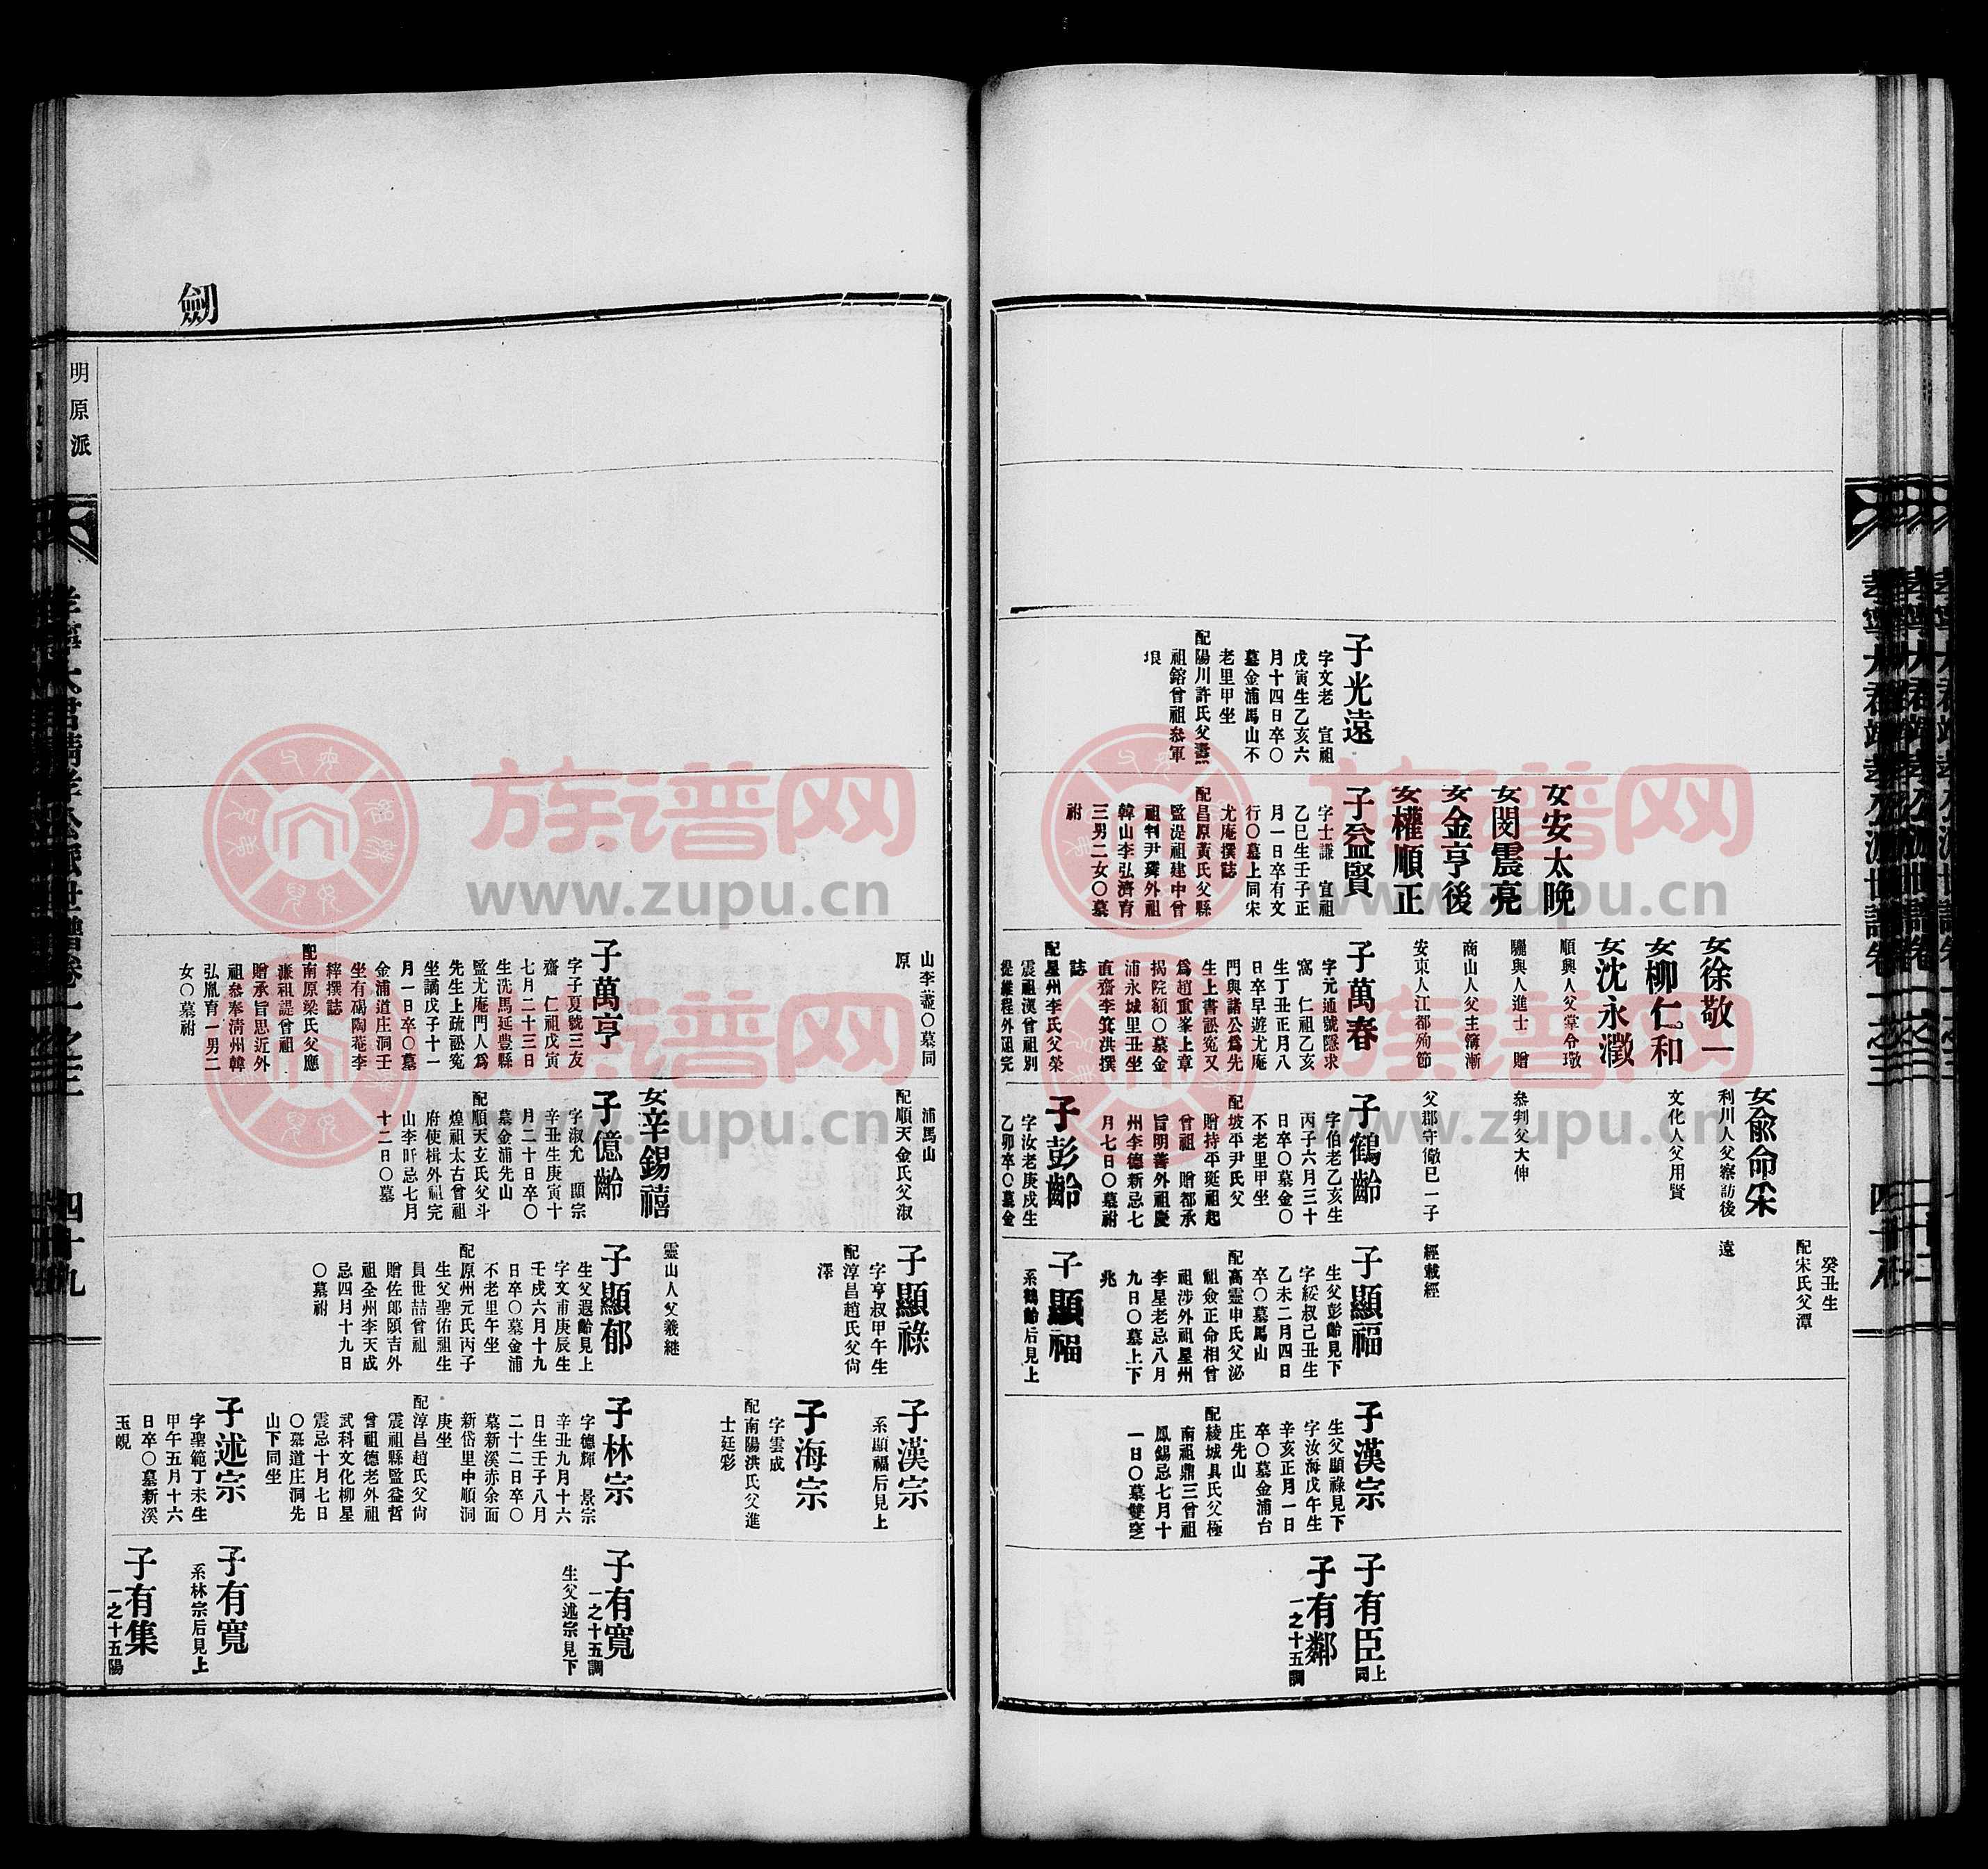 子光遠
字文老 宣祖
戊寅生乙亥六
月十四日卒〇
墓金浦馬山不
老里甲坐
配陽川許氏父
祖鎔曾祖叅軍
垠
女安太晚
女閔震亮
女金亨後
女權順正
子益賢
字士謙 宣祖
乙巳生壬子正
月一日卒有文
行〇墓上同宋
尤庵撰誌
配昌原黃氏父縣
監湜祖建中曾
祖判尹璘外祖
韓山李弘濟育
三男二女〇墓
祔
女徐敬一
女柳仁和
女沈永澂
順興人父掌令
驪興人進士 贈
商山人父主簿漸
安東人江都殉節
子萬春
字元通號隱求
窩 仁祖乙亥
生丁丑正月八
日卒早遊尤庵
門與諸公爲先
生上書訟寃又
爲趙重峯上章
揭院額〇墓金
浦永城里丑坐
直齋李箕洪撰
誌
配星州李氏父榮
震祖漢曾祖別
提維程外祖完
女兪命宋
利川人父察訪後
文化人父用賢
叅判父大仲
父郡守徹巳一子
子鶴齡
字伯老乙亥生
丙子六月三十
日卒〇墓金〇
不老里甲坐
配坡平尹氏父
贈持平珽祖起
曾祖 贈都承
旨明善外祖慶
州李德新忌七
月七日〇墓祔
子彭齡
字汝老庚戌生
乙卯卒〇墓金
癸丑生
配宋氏父潭
遠
經載經
子顯福
生父彭齡見下
字綏叔己丑生
乙未二月四日
卒〇墓馬山
配高靈申氏父泌
祖僉正命相曾
祖涉外祖星州
李星老忌八月
九日〇墓上下
兆
子顯福
系鶴齡后見上
子漢宗
生父顯祿見下
字汝海戊午生
辛亥正月一日
卒〇墓金浦台
庄先山
配綾城具氏父極
南祖鼎三曾祖
鳳錫忌七月十
一日〇墓雙窆
子有臣
上同
子有鄰
一之十五調
劒
明原派
山李藎〇墓同
原
子萬亨
字子夏號三友
齋 仁祖戊寅
七月二十三日
生洗馬延豊縣
監尤庵門人爲
先生上疏訟寃
坐謫戊子十一
月一日卒〇墓
金浦道庄洞壬
坐有碣陶菴李
縡撰誌
配南原梁氏父應
漎祖諟曾祖
贈承旨思近外
祖叅奉淸州韓
弘胤育一男二
女〇墓祔
浦馬山
配順天金氏父淑
女辛錫禧
子億齡
字淑允 顯宗
辛丑生庚寅十
月二十日卒〇
墓金浦先山
配順天玄氏父斗
煌祖太古曾祖
府使楫外祖完
山李旰忌七月
十二日〇墓
子顯祿
字亨叔甲午生
配淳昌趙氏父尙
澤
靈山人父羲繼
子顯郁
生父遐齡見上
字文甫庚辰生
壬戌六月十九
日卒〇墓金浦
不老里午坐
配原州元氏丙子
生父聖佑祖生
員世喆曾祖
贈佐郎頤吉外
祖全州李天成
忌四月十九日
〇墓祔
子漢宗
系顯福后見上
子海宗
字雲成
配南陽洪氏父進
士廷彩
子林宗
字德輝 景宗
辛丑九月十六
日生壬子八月
二十二日卒〇
墓新溪赤余面
新岱里中順洞
庚坐
配淳昌趙氏父尙
震祖縣監益哲
曾祖德老外祖
武科文化柳星
震忌十月七日
〇墓道庄洞先
山下同坐
子述宗
字聖範丁未生
甲午五月十六
日卒〇墓新溪
玉峴
子有寬
一之十五調
生父述宗見下
子有寬
系林宗后見上
子有集
一之十五陽
四十九
族谱网
www.zupu.cn
族谱网
www.zupu.cn
族谱网
www.zupu.cn
族谱网
www.zupu.cn